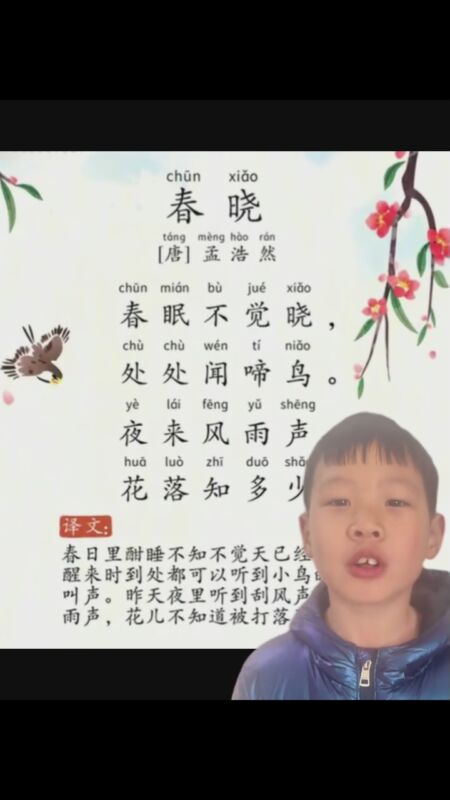 chūn xiǎo
春晓
táng mèng hào rán
[唐] 孟浩然
chūn mián bù jué xiǎo
春眠不觉晓，
chù chù wén tí niǎo
处处闻啼鸟。
yè lái fēng yǔ shēng
夜来风雨声
huā luò zhī duō
花落知多少
译文:
春日里酣睡不知不觉天已经
醒来时到处都可以听到小鸟
叫声。昨天夜里听到刮风声
雨声，花儿不知道被打落